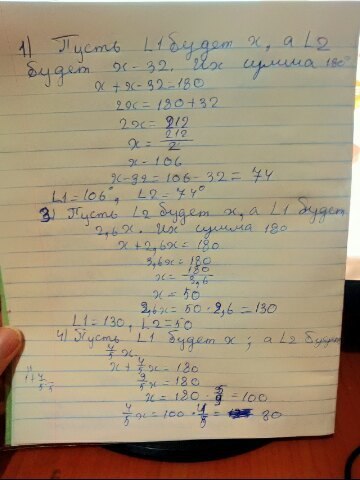 1) Пусть L1 будет x, а L2
будет x-32. Их сумма 180°
x + x - 32 = 180
2x = 180 + 32
2x = 212
x = 212/2
x = 106
x - 32 = 106 - 32 = 74
L1 = 106°, L2 = 74°
3) Пусть L2 будет x, а L1 будет
2,6x. Их сумма 180
x + 2,6x = 180
3,6x = 180
x = 180/3,6
x = 50
2,6x = 50 · 2,6 = 130
L1 = 130, L2 = 50
4) Пусть L1 будет x; а L2 будет
4/5 x.
x + 4/5 x = 180
9/5 x = 180
x = 180 · 5/9 = 100
4/5 x = 100 · 4/5 = 80